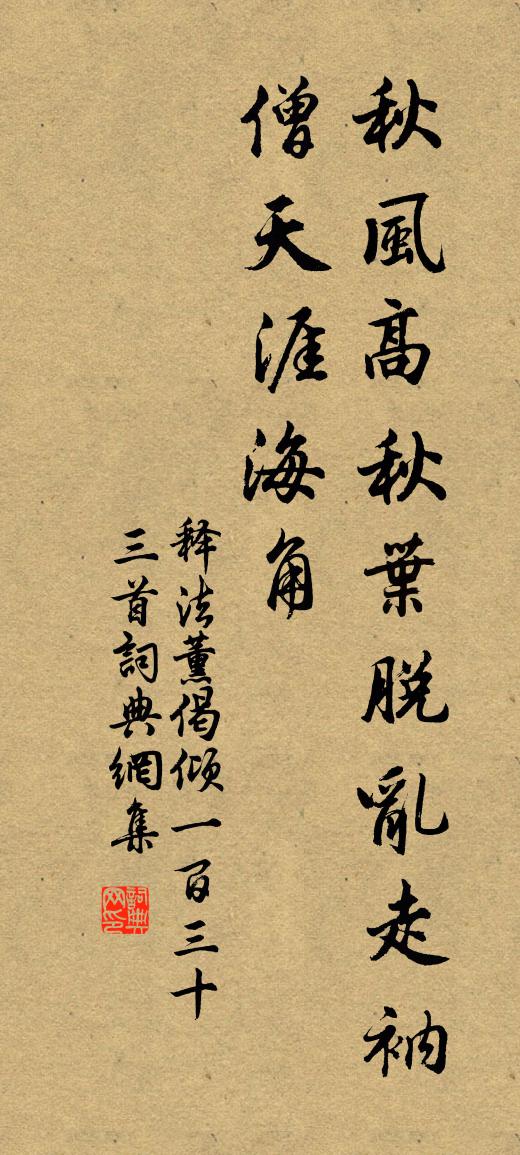 秋風高秋葉脫亂走衲
僧天涯海角
释法薰偈傾一百三十
三首詞典網集
詞典
网印